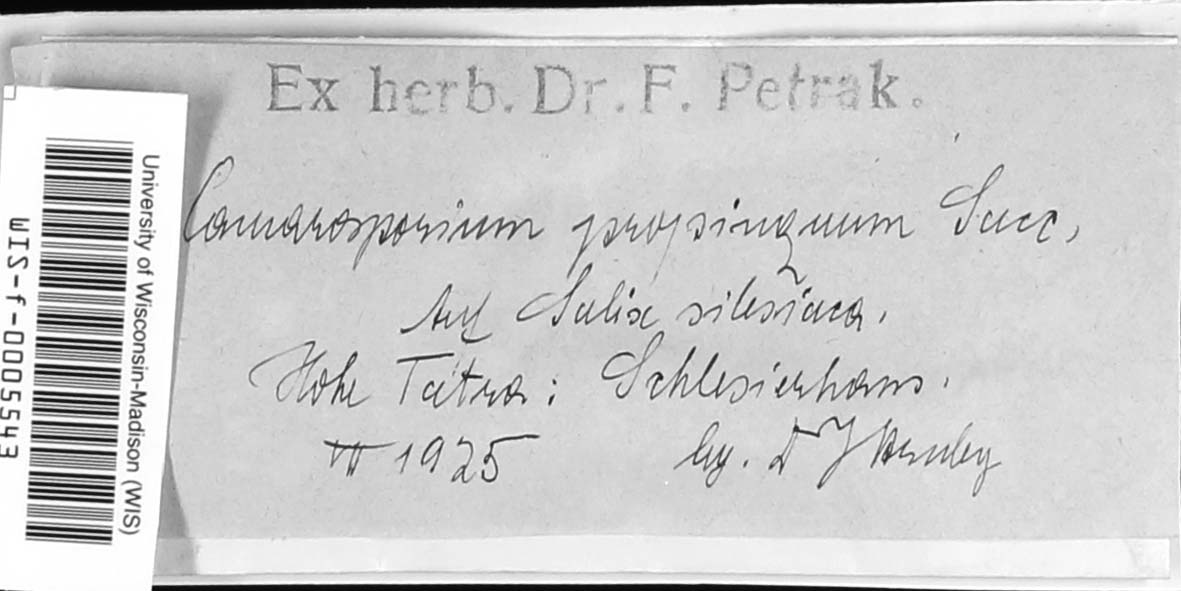 Ex herb. Dr. F. Petrak.
Camarosporium propinquum Sacc,
Auf Salix silesiaca.
Hohe Tatra: Schlesierhaus.
VII 1925 leg. Dr J Hruby
University of Wisconsin-Madison (WIS)
WIS-f-0005543